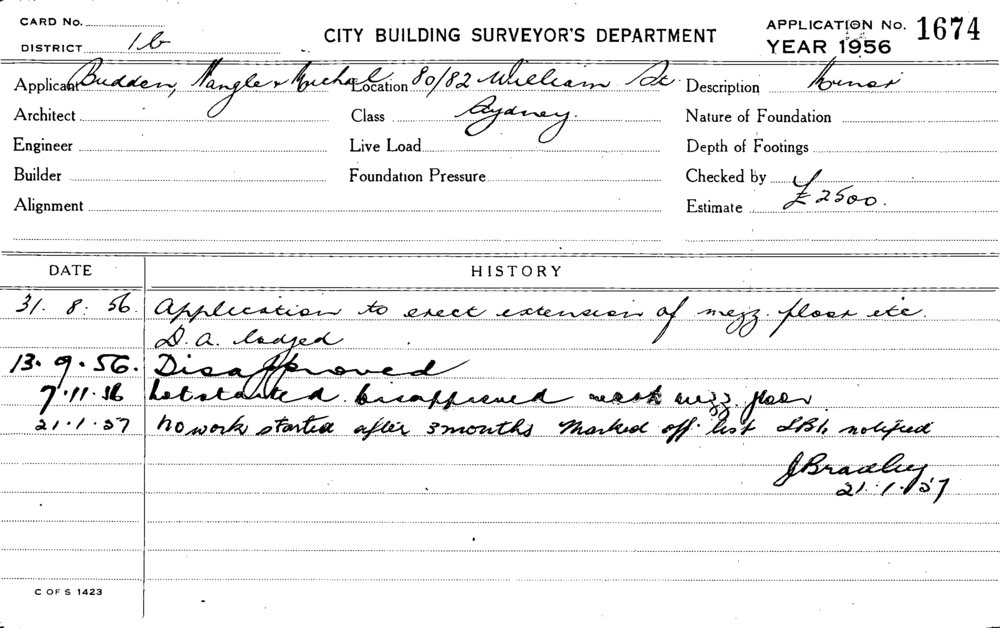 CARD No.
DISTRICT 1b
CITY BUILDING SURVEYOR'S DEPARTMENT
APPLICATION No. 1674
YEAR 1956
Applicant Budden, Nangle & Michael Location 80/82 William St Description Minor
Architect Class Sydney. Nature of Foundation
Engineer Live Load Depth of Footings
Builder Foundation Pressure Checked by
Alignment Estimate £2500.
DATE HISTORY
31. 8. 56. Application to erect extension of mezz. floor etc.
D.A. lodged
13. 9. 56. Disapproved
7.11.56 Not started. Disapproved work mezz floor.
21.1.57 No work started after 3 months Marked off list notified
J Bradley
21.1.57
C OF S 1423